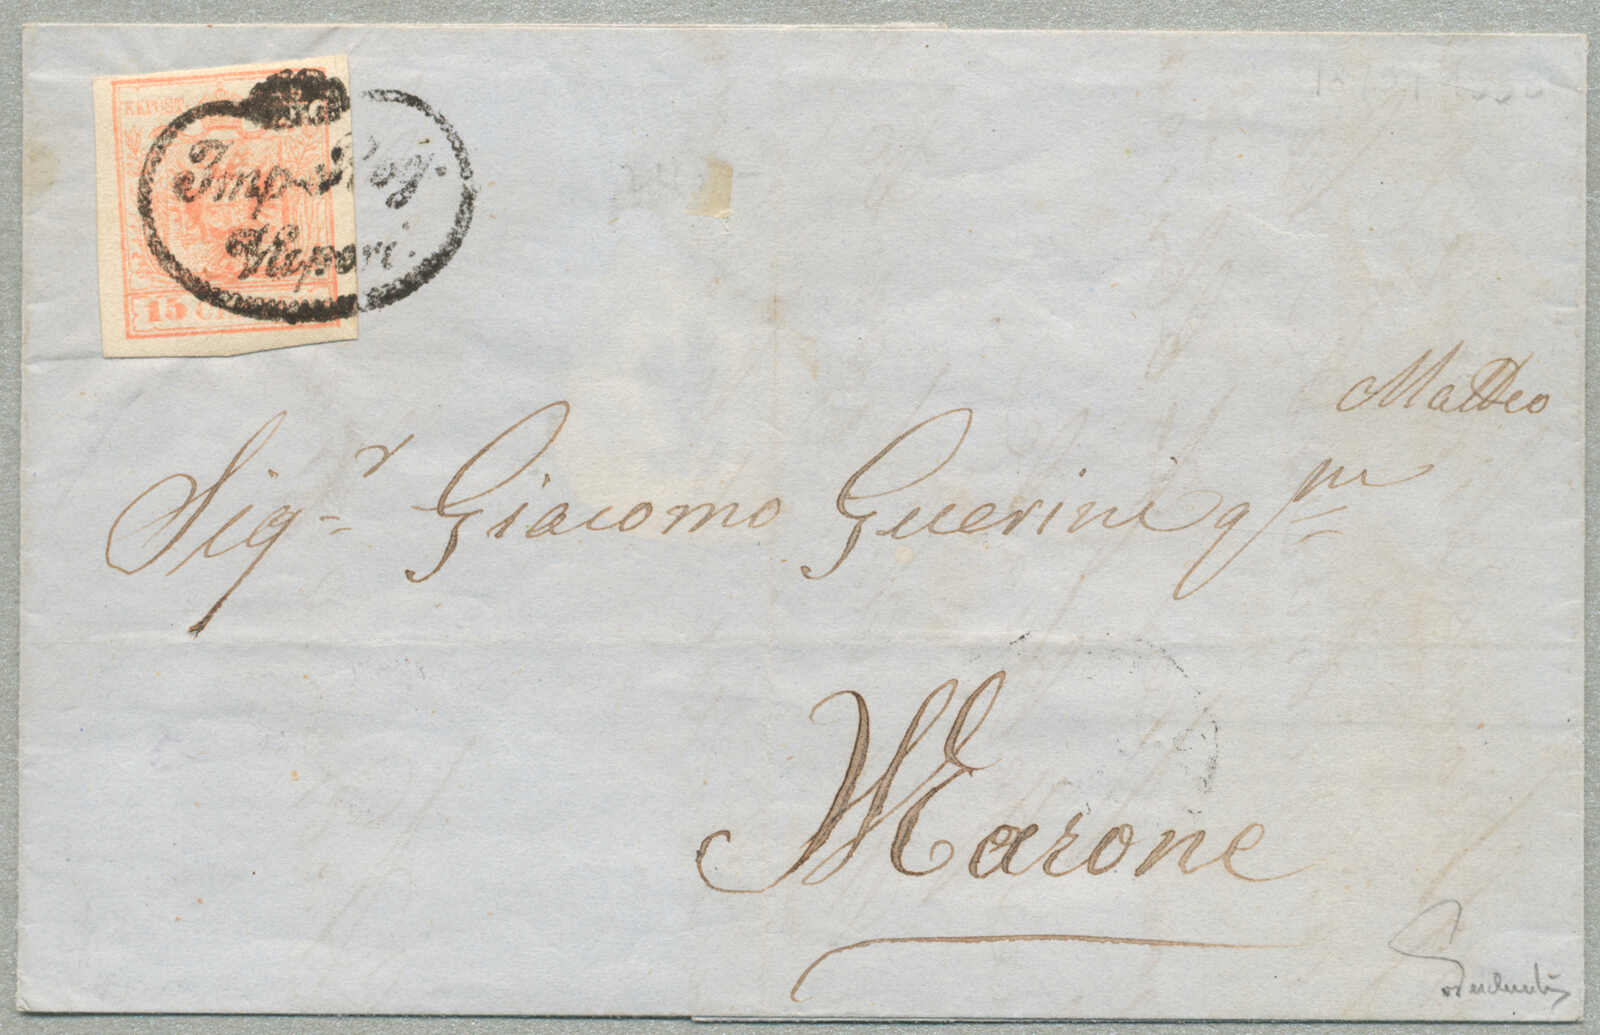 KKPOST
15 CE
Imp. Reg.
Vapori.
Matteo
Sig.r Giacomo Guerini qm
Marone